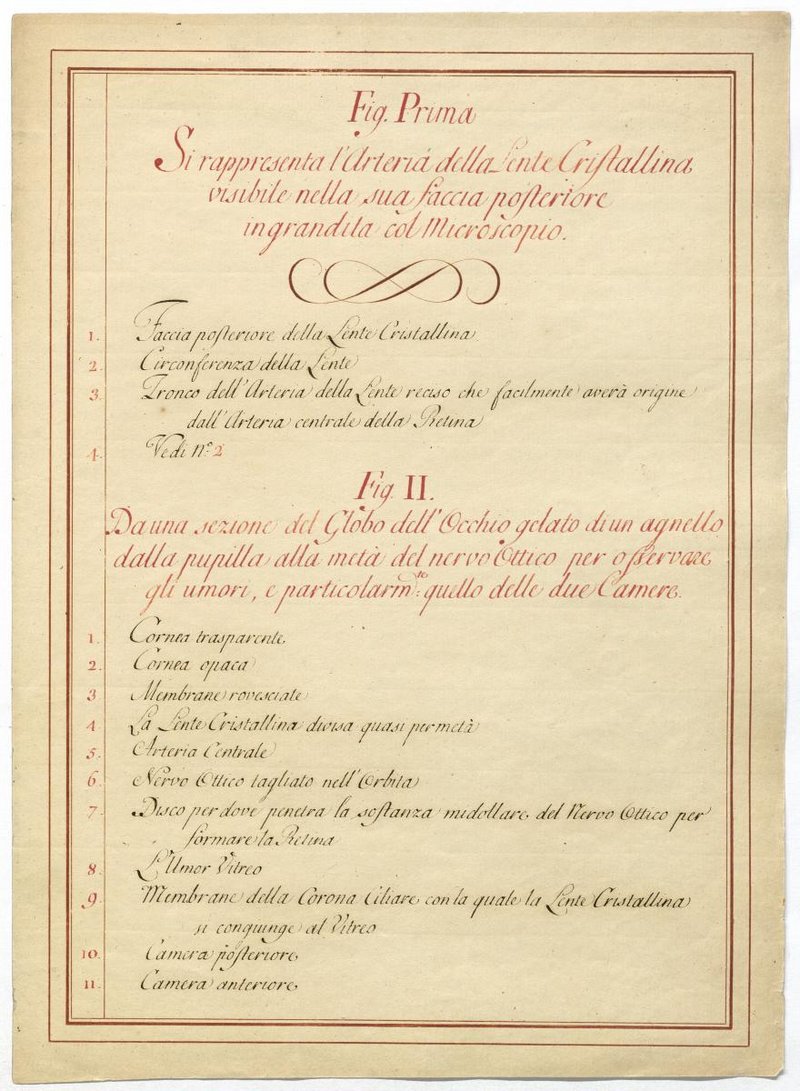 Fig. Prima
Si rappresenta l'Arteria della Lente Cristallina
visibile nella sua faccia posteriore
ingrandita col Microscopio.
1. Faccia posteriore della Lente Cristallina
2. Circonferenza della Lente
3. Tronco dell'Arteria della Lente reciso che facilmente averà origine
dall'Arteria centrale della Retina
4. Vedi n.º 2
Fig. II.
Da una sezione del Globo dell'Occhio gelato di un agnello
dalla pupilla alla metà del nervo Ottico per osservare
gli umori, e particolarm.te quello delle due Camere.
1. Cornea trasparente
2. Cornea opaca
3 Membrane rovesciate
4 La Lente Cristallina divisa quasi per metà
5. Arteria Centrale
6. Nervo Ottico tagliato nell'Orbita
7. Disco per dove penetra la sostanza midollare del Nervo Ottico per
formare la Retina
8. L'Umor Vitreo
9. Membrane della Corona Ciliare con la quale la Lente Cristallina
si conguinge al Vitreo
10. Camera posteriore
11. Camera anteriore